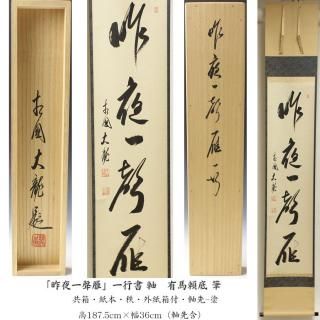 相國大龍題
昨夜一聲雁
相國大龍
昨夜一聲雁一行
昨夜一聲雁
相國大龍
「昨夜一聲雁」一行書 軸 有馬頼底 筆
共箱・紙本・秩・外紙箱付・軸先-塗
高187.5cm×幅36cm（軸先含）